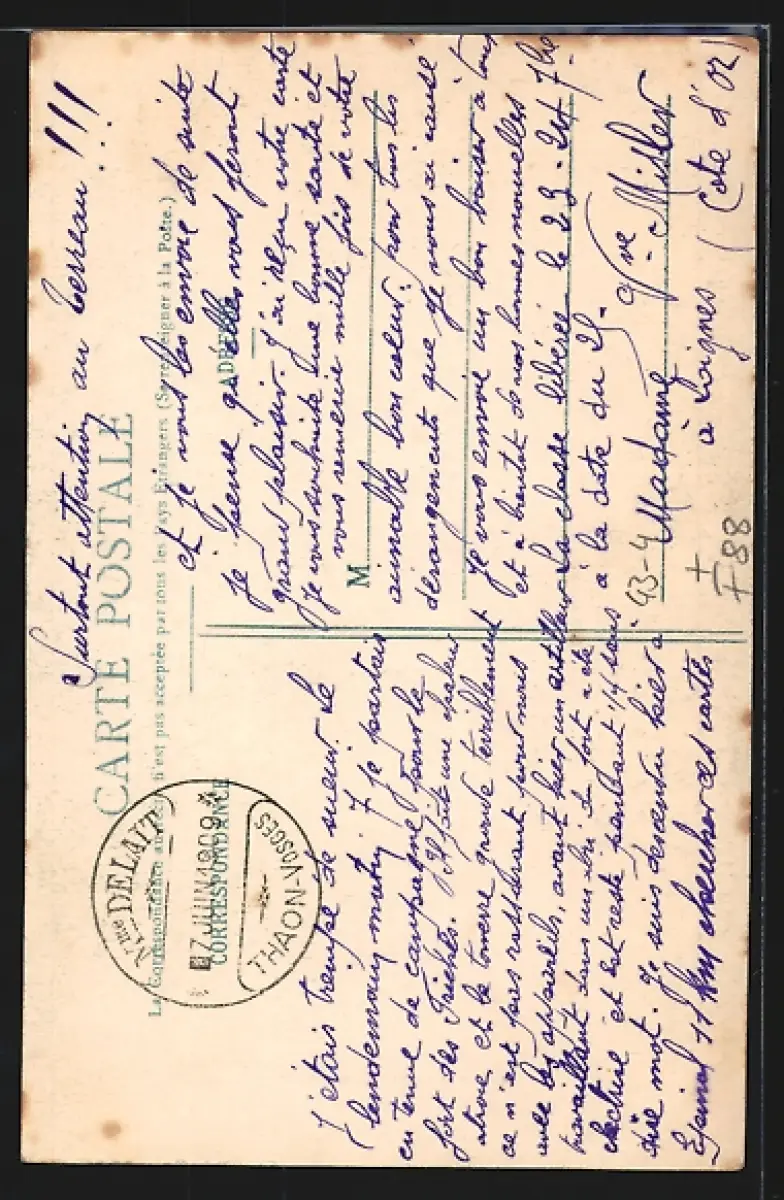 Surtout attention au terreau !!!
CARTE POSTALE
La Correspondance au recto n'est pas acceptée par tous les Pays Etrangers (Se renseigner à la Poste.)
CORRESPONDANCE
ADRESSE
Mlle DELAIT
7 JUIN 1909
THAON-VOSGES
J'étais trempé de sueur. Le
lendemain matin 7 je partais
en tenue de campagne pour le
fort des Friches. Il fait une chaleur
atroce et le tonnerre gronde terriblement
ce n'est pas rassurant pour nous
avec les appareils, avant hier un artilleur
travaillant dans un abri du fort a été
et est resté pendant 1/4 sans
dire mot. Je suis descendu hier à
Epinal 11 Km chercher des cartes
et je vous les envoie de suite
je pense qu'elles vous feront
grand plaisir. J'ai reçu votre carte
je vous souhaite une bonne santé et
vous remercie mille fois de votre
M
aimable bon cœur, pour tous les
dérangements que je vous ai causé
je vous envoie un bon baiser à tous
et à bientôt de vos bonnes nouvelles
La classe libérée le 23 - 7bre
à la date du 25.
93-4
Madame Vve Miller
à Loignes (Côte d'Or)
±
F88